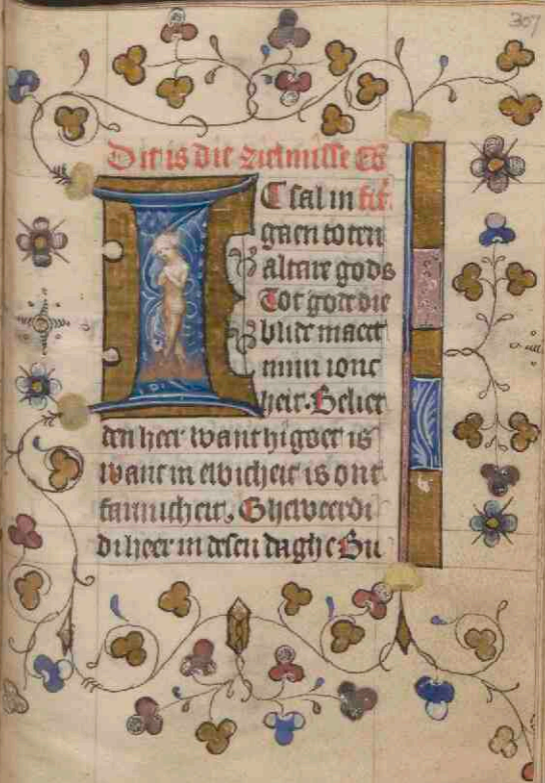 307
Dit is die zielmisse
IC sal in
gaen toten
altare gods
Tot gode die
blide maect
miin ionc
heit. Beliet
den heer want hi goet is
want in ewicheit is ont
farmicheit. Ghewerdi
di heer in desen daghe